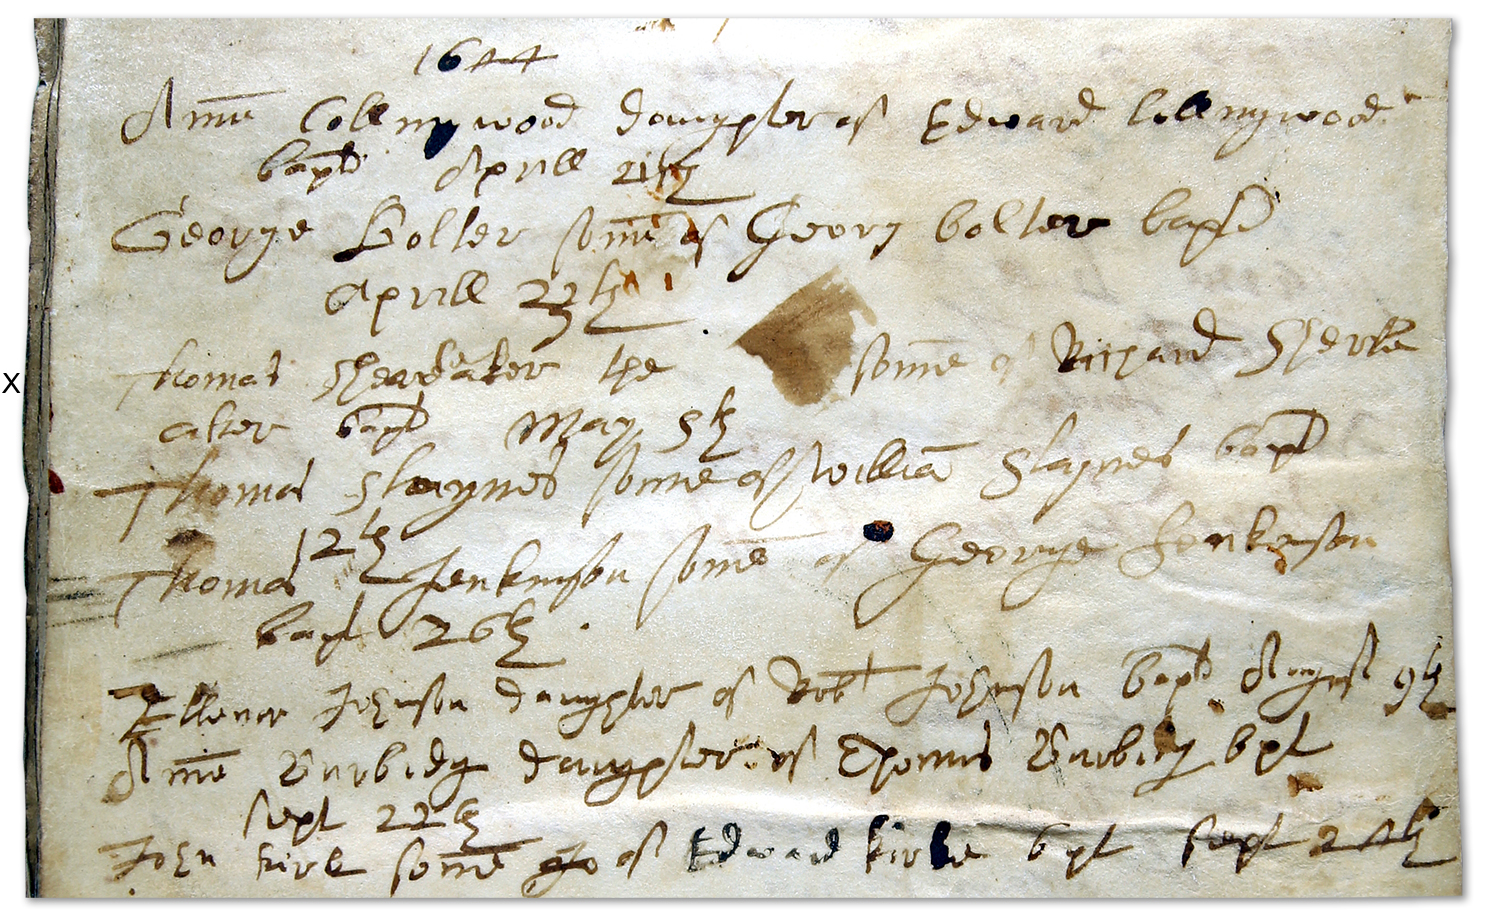 1644
Anne Collingwood daughter of Edward Collingwood
bapt Aprill 21th
George Bolter sonne of Georg bolter bapt
Aprill 23th
Thomas the sonne of Richard
alter bapt May 5th
Thomas Staynes sonne of William Staynes bapt
12th
Thomas Jenkinson sonne of George Jenkinson
bapt 26th
Ellenor Johnson daughter of Robt Johnson bapt August 9th
Anne Burbidg daughter of Thomas Burbidg bpt
Sept 22th
X
John Kirke sonne of Edward Kirke bpt Sept 24th